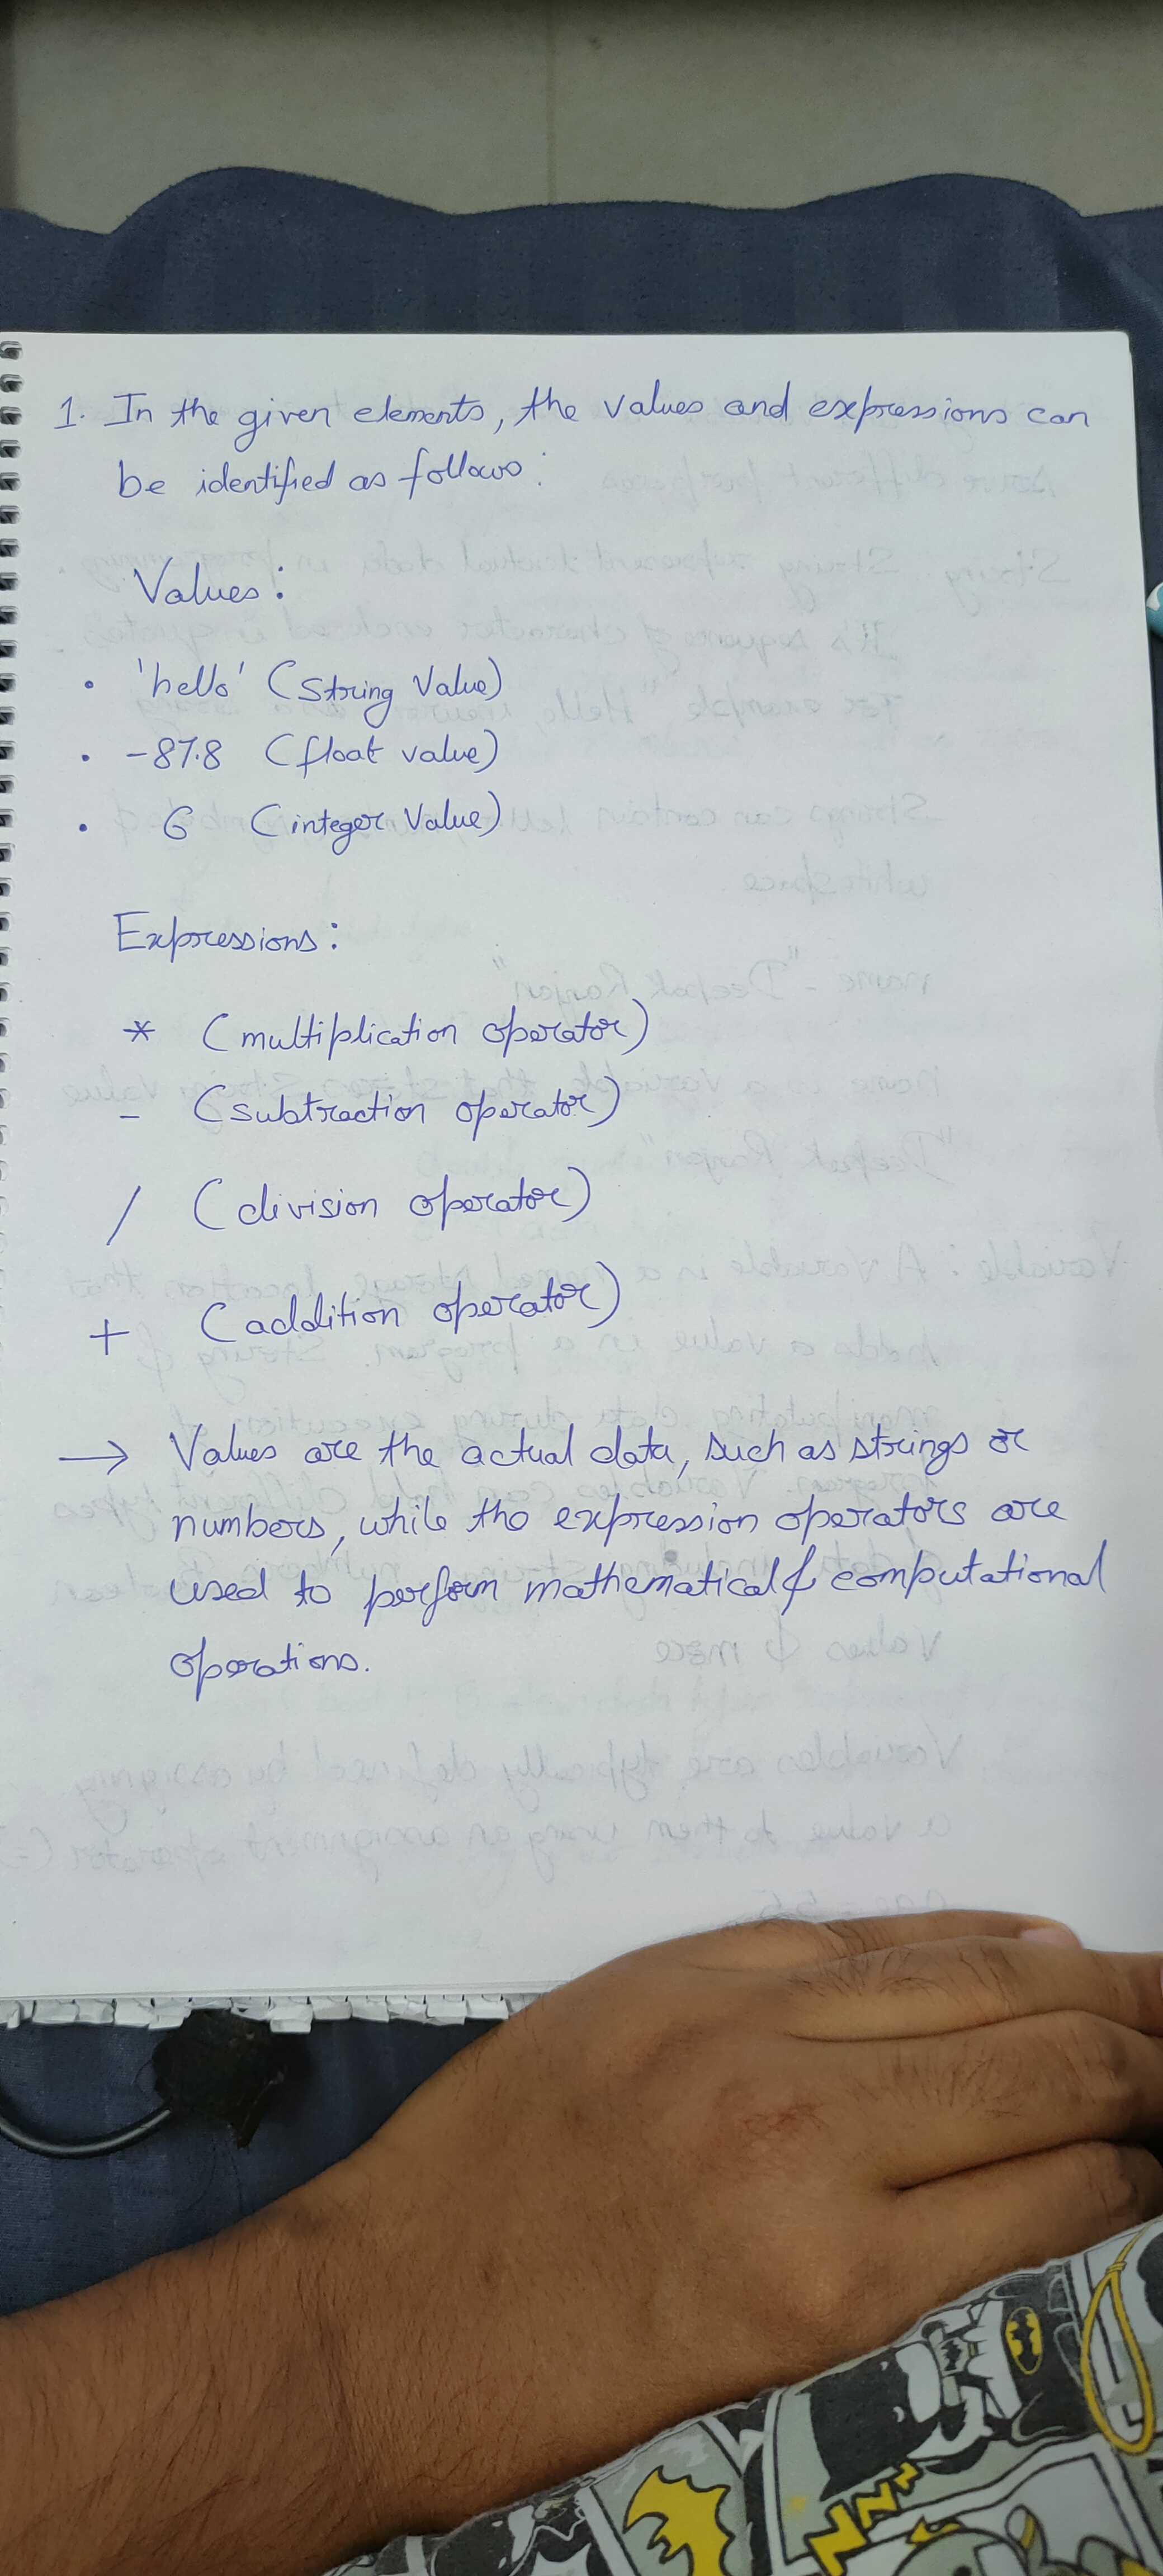 1. In the given elements, the values and expressions can
be identified as follows:
Values:
• 'hello' (String Value)
• -87.8 (float value)
• 6 (integer Value)
Expressions:
* (multiplication operator)
- (subtraction operator)
/ (division operator)
+ (addition operator)
→ Values are the actual data, such as strings or
numbers, while the expression operators are
used to perform mathematical & computational
operations.